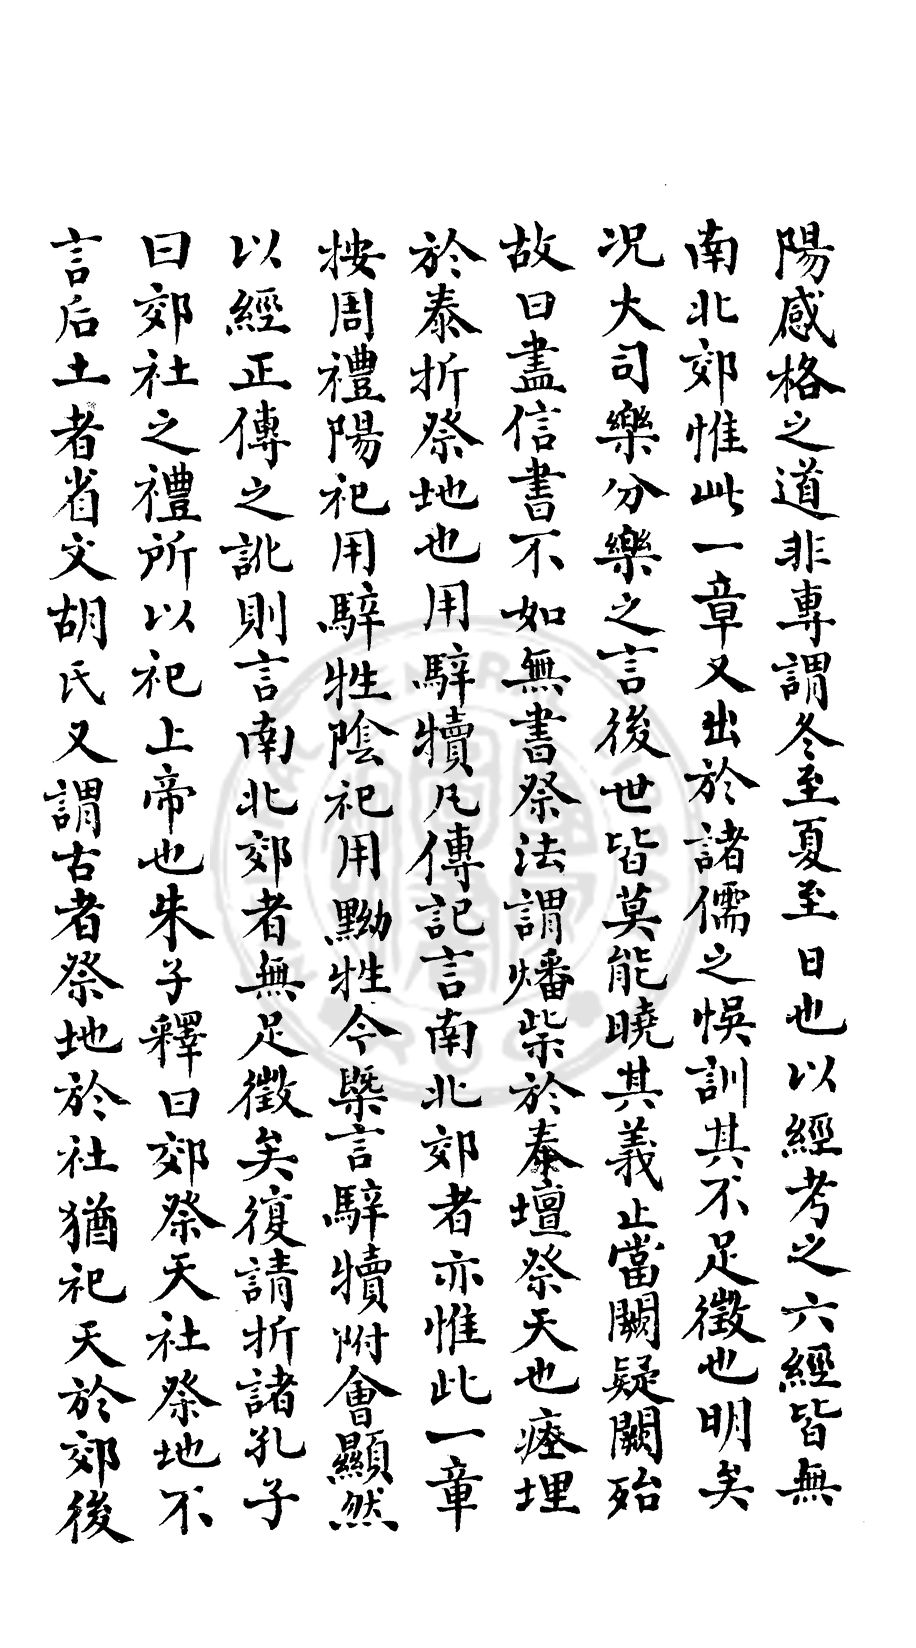 陽感格之道非專謂冬至夏至日也以經考之六經皆無
南北郊惟此一章又出於諸儒之悞訓其不足徵也明矣
况大司樂分樂之言後世皆莫能曉其義止當闕疑闕殆
故曰盡信書不如無書祭法謂燔柴於泰壇祭天也瘞埋
於泰折祭地也用騂犢凡傳記言南北郊者亦惟此一章
按周禮陽祀用騂牲陰祀用黝牲今槩言騂犢附會顯然
以經正傳之訛則言南北郊者無足徵矣復請折諸孔子
曰郊社之禮所以祀上帝也朱子釋曰郊祭天社祭地不
言后土者省文胡氏又謂古者祭地於社猶祀天於郊後